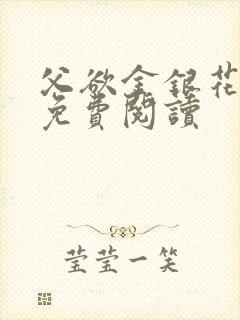 父欲金銀花
免費閱讀
莹莹一笑